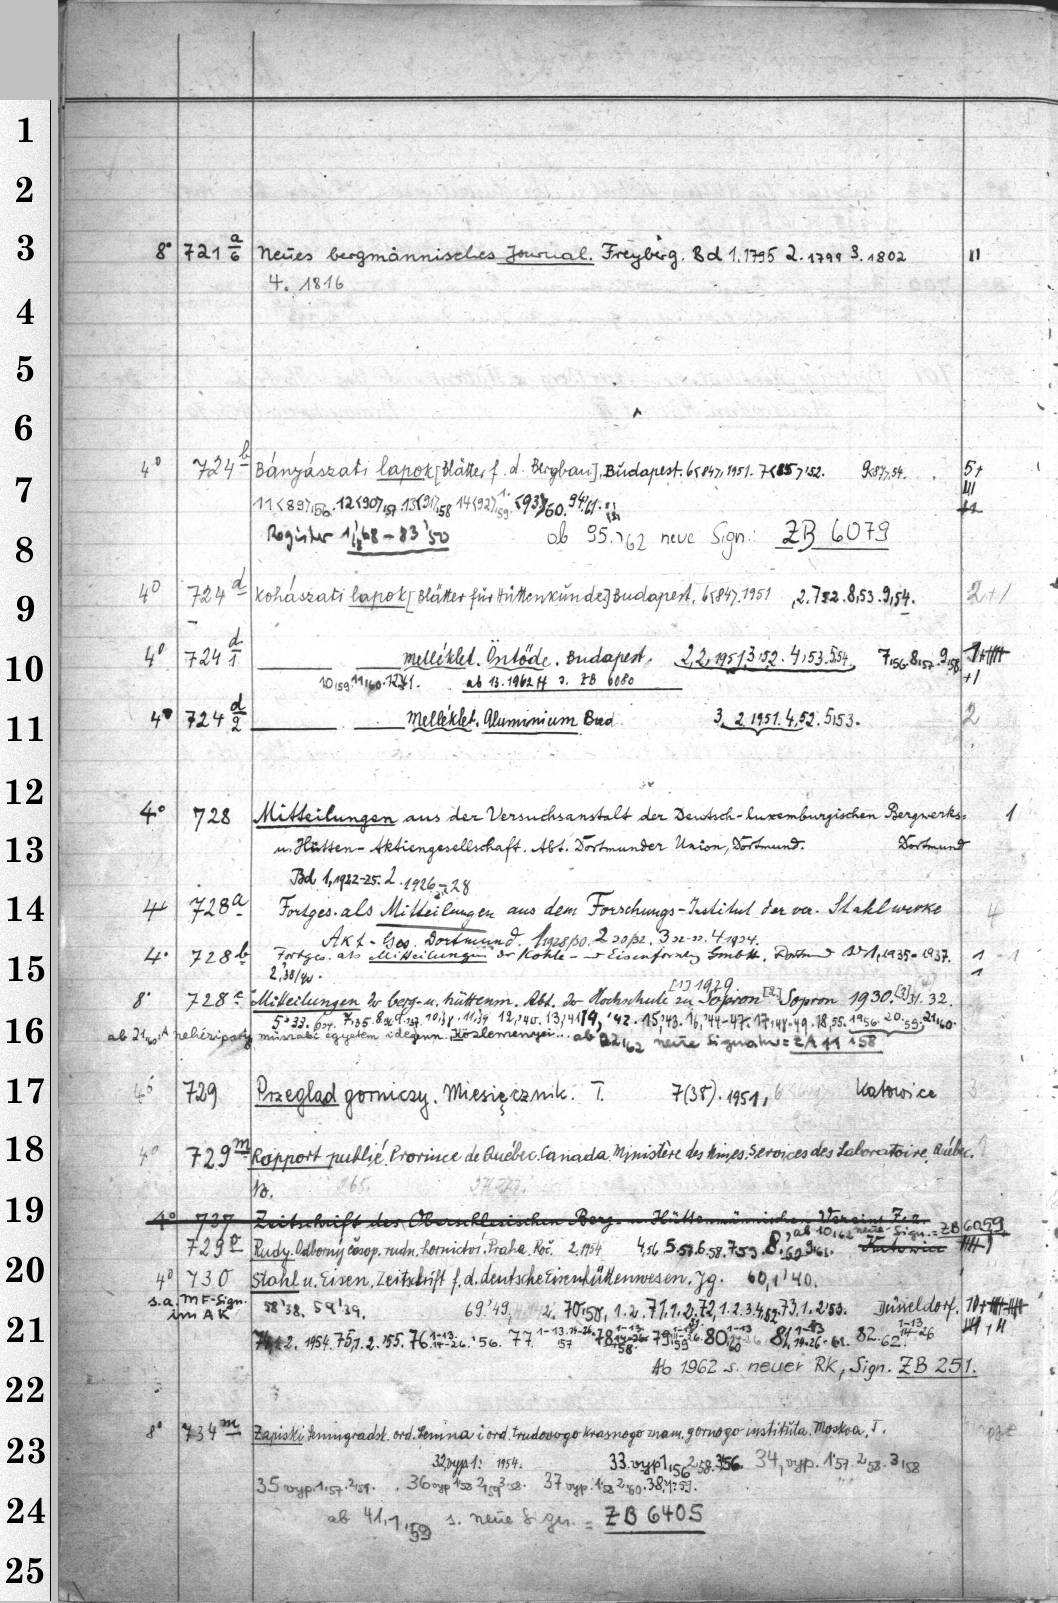 1
2
3 8° 721 a/6 Neues bergmännisches Journal. Freyberg. Bd 1.1795 2.1799 3.1802 III
4. 1816
4
5
6
4° 724 b Bányászati lapok [Blätter f. d. Bergbau]. Budapest. 6<84>,1951. 7<85>,52. 9<87>,54. 5+
7 11<89>,56. 12<90>,57. 13<91>,58 14<92>,59. <93>,60. 94,61. III
8 Register 1,'68-83'50 ab 95.,62 neue Sign.: ZB 6079
9 4° 724 d Kohászati lapok [Blätter für Hüttenkunde] Budapest. 6<84>.1951 8,53. 9,54. 2+1
10 4° 724 d/1 melléklet. Öntöde. Budapest. 2,2,1951, 3,52. 4,53. 5,54. 7,56. 8,57. 9,58
10,59 11,60. 12,61. ab 13.1962 s. ZB 6080 +1
11 4° 724 d/2 Melléklet. Aluminium Bud 3, 2 1951. 4,52. 5,53. 2
12 4° 728 Mitteilungen aus der Versuchsanstalt der Deutsch-luxemburgischen Bergwerks- 1
13 u. Hütten-Aktiengesellschaft. Abt. Dortmunder Union, Dortmund. Dortmund
Bd 1,1922-25. 2.1926-28
14 728 a Fortges. als Mitteilungen aus dem Forschungs-Institut der ver. Stahlwerke 4
Akt-Ges. Dortmund. 1,1928/30. 2,30/32. 3,32-33. 4,1934.
15 4° 728 b Fortges. als Mitteilungen der Kohle- u Eisenforschg GmbH. Dortmund Bd 1,1935-1937. 1-1
2,38/40. 1
8° 728 c Mitteilungen der berg- u. hüttenm. Abt. der Hochschule zu Sopron [1] 1929. [2] Sopron 1930. [3] 31. 32.
5,33. 10,38. 11,39 12,40. 13,41 14, '42. 15,'43. 16,'44-47. 17,'48-49. 18,55. 19,56. 20,59. 21,60.
16 ab 21,60 A nehézipari müszaki egyetem idegen... Közlemenyei... ab 22,62 neue Signatur = ZA 11 158
17 4° 729 Przegląd gorniczy. Miesięcznik. T. 7(38). 1951, Katowice 3
18 4° 729 m Rapport publié. Province de Québec. Canada. Ministère des Mines. Services des Laboratoire. Québec.
No. 265.
19 4° 737 Zeitschrift des Oberschlesischen Berg- u. Hüttenmännischen Vereins Z. zu Kattowitz
729 p Rudy. Odborný časop. rudn. hornictví. Praha. Roč. 2,1954 4,56. 5,57. 6,58. 7,59. 8,60. 9,61. ab 10,62 neue Sign. = ZB 6059
20 4° 730 Stahl u. Eisen. Zeitschrift f. d. deutsche Eisenhüttenwesen. Jg. 60,1'40.
s.a. MF-Sign. im AK
58'38. 59'39. 69'49, 70'50, 1.2. 71,1.2. 72,1.2.3.4,52. 73,1.2'53. Düsseldorf.
21 74,1.2. 1954. 75,1.2.'55. 76,1-13. 14-26.'56. 77,1-13.14-26 57 78,1-13 14-26 58. 79,1-13 14-26 59 80,1-13 14-26 60 81,1-13 14-26.61. 82,62 1-13 14-26
Ab 1962 s. neuer RK, Sign. ZB 251.
22
8° 734 m Zapiski Leningradsk. ord. Lenina i ord. trudovogo krasnogo znam. gornogo instituta. Moskva, T.
23 32 vyp 1: 1954. 33 vyp 1,56 2,58. 3,56. 34, vyp. 1'57. 2,58. 3,58
35 vyp. 1,57. 2,59. 36 vyp 1,58 2,59 3,58. 37 vyp. 1,58 2,60. 38,1,59.
24 ab 41,1,59 s. neue Sign. = ZB 6405
25